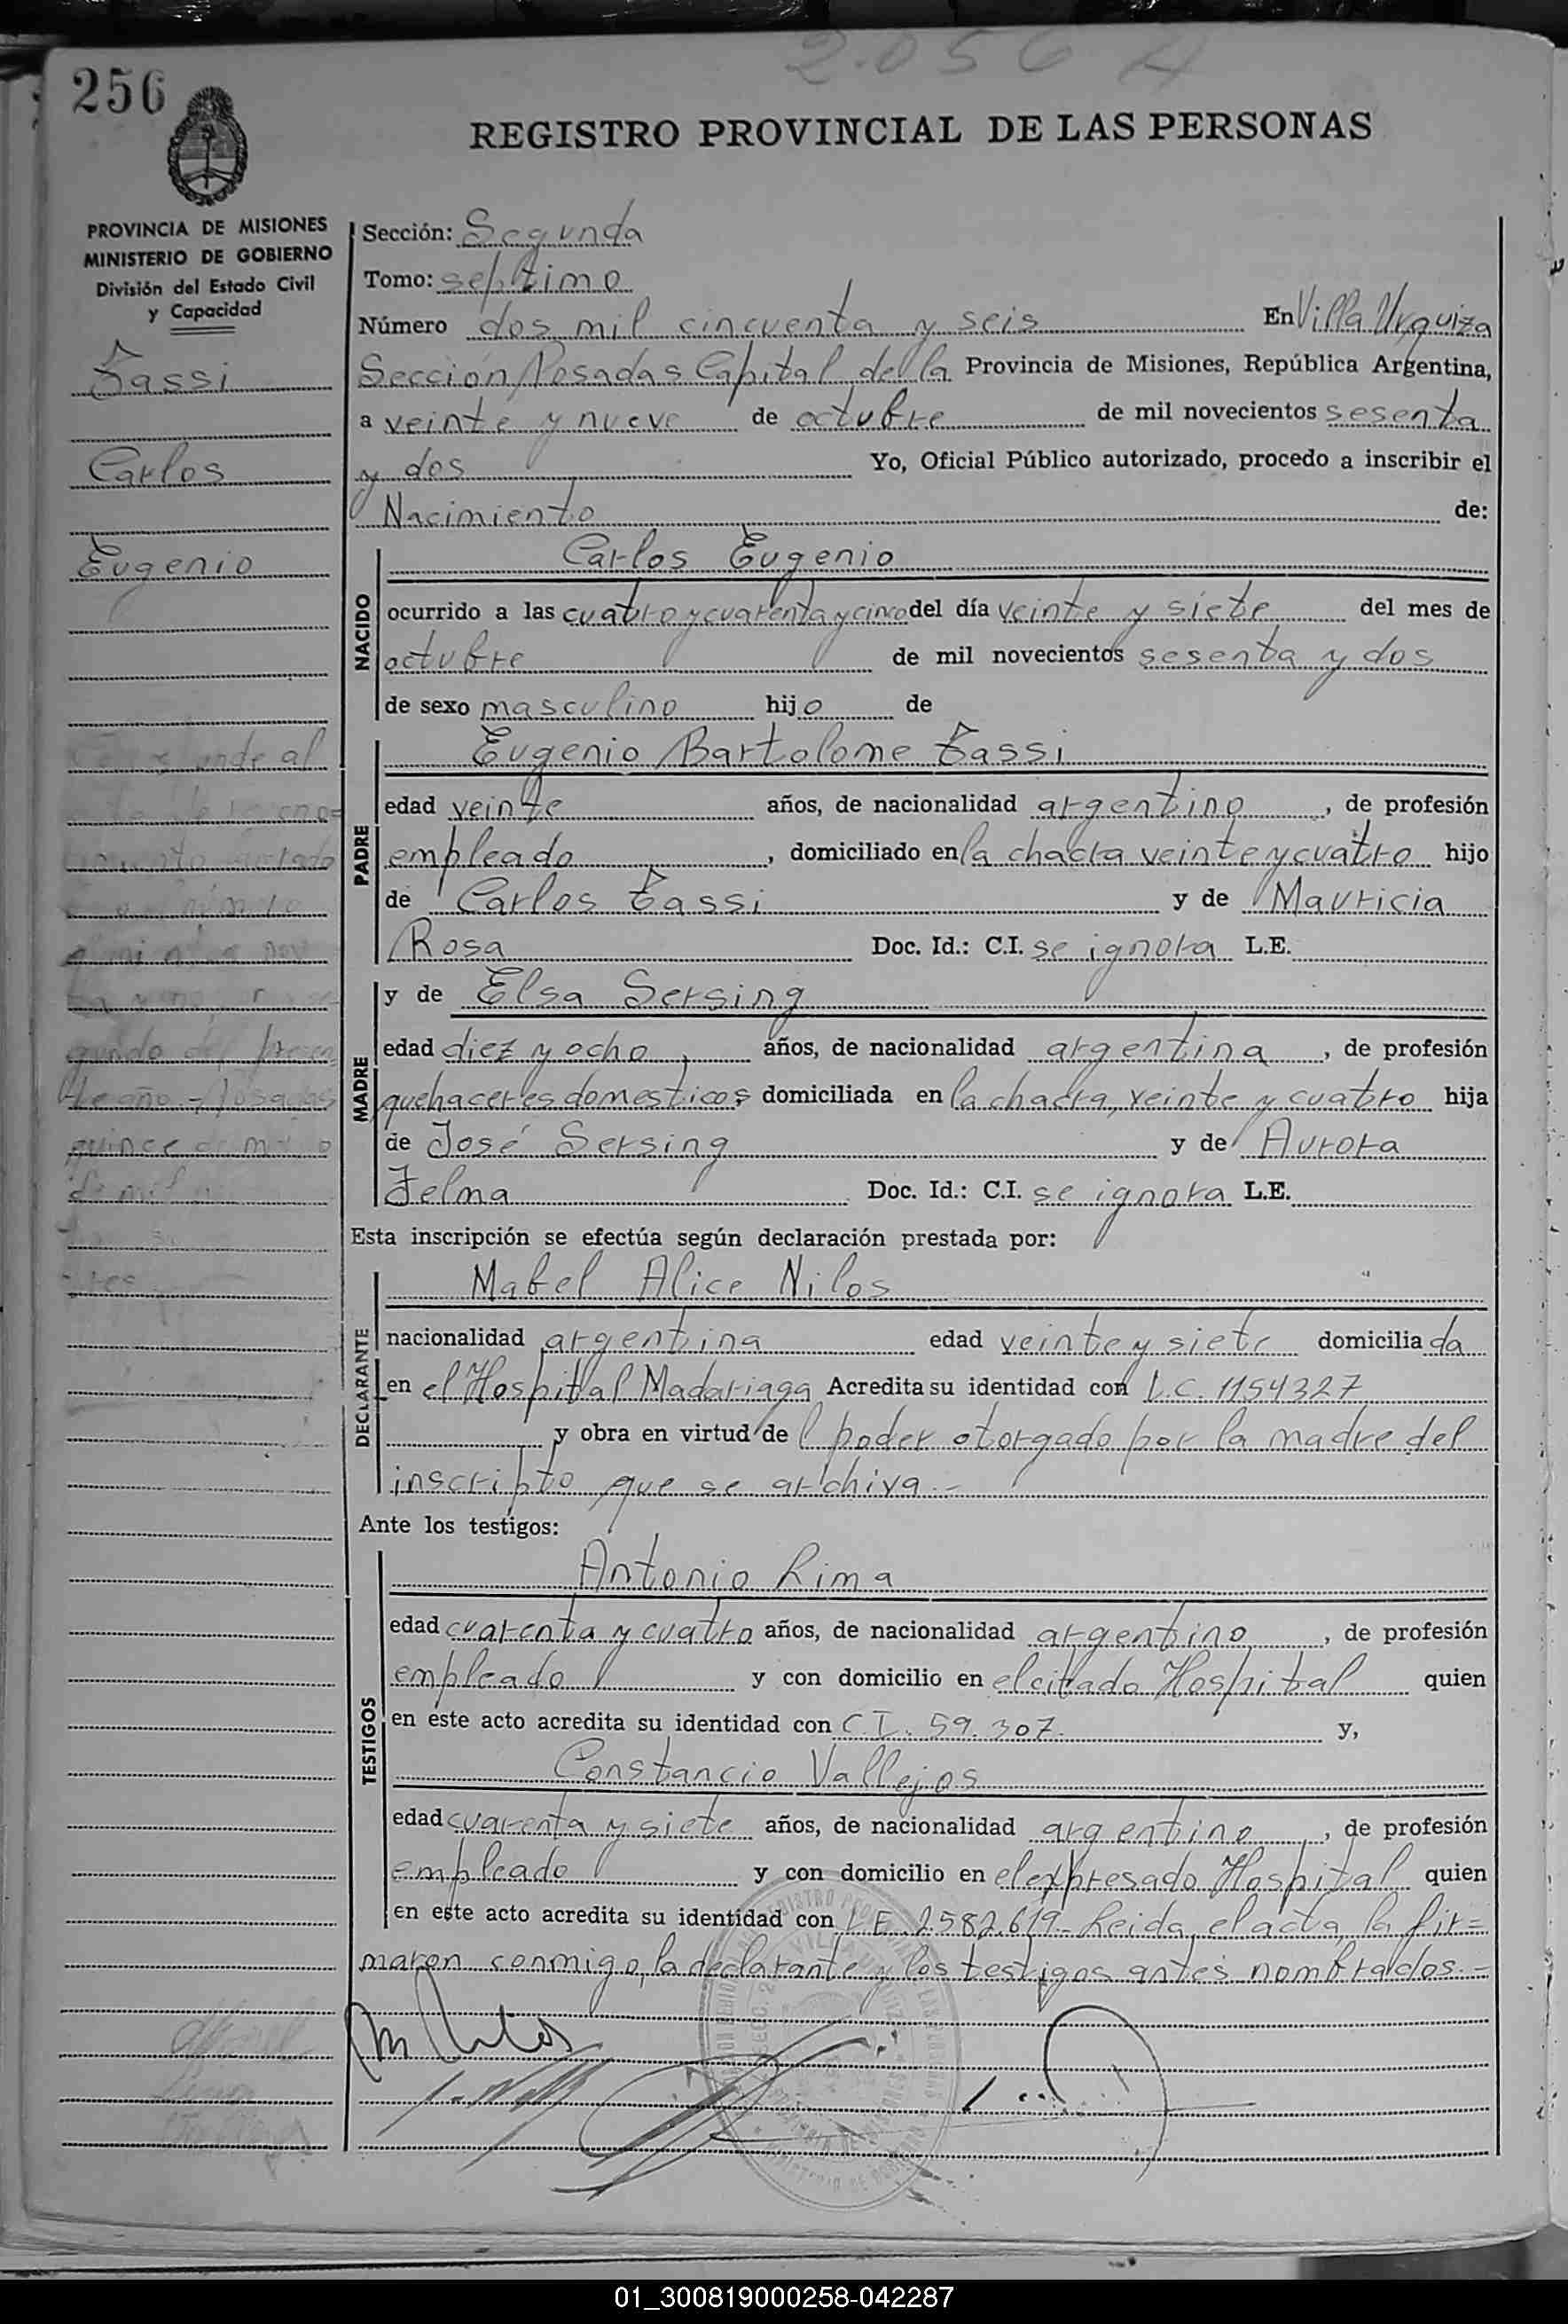 2.056
256
REGISTRO PROVINCIAL DE LAS PERSONAS
PROVINCIA DE MISIONES
MINISTERIO DE GOBIERNO
División del Estado Civil
y Capacidad
Sección: Segunda
Tomo: septimo
Número dos mil cincuenta y seis En Villa Urquiza
Sección Posadas Capital de la Provincia de Misiones, República Argentina,
a veinte y nueve de octubre de mil novecientos sesenta
y dos Yo, Oficial Público autorizado, procedo a inscribir el
Nacimiento de:
Tassi
Carlos
Eugenio
NACIDO
Carlos Eugenio
ocurrido a las cuatro y cuarenta y cinco del día veinte y siete del mes de
octubre de mil novecientos sesenta y dos
de sexo masculino hijo de
PADRE
Eugenio Bartolome Tassi
edad veinte años, de nacionalidad argentino, de profesión
empleado, domiciliado en la chacra veinte y cuatro hijo
de Carlos Tassi y de Mauricia
Rosa Doc. Id.: C.I. se ignora L.E.
MADRE
y de Elsa Sersing
edad diez y ocho, años, de nacionalidad argentina, de profesión
quehaceres domesticos domiciliada en la chacra veinte y cuatro hija
de José Sersing y de Aurora
Telma Doc. Id.: C.I. se ignora L.E.
al
presen
te año.- Posadas
quince de
de mil
Esta inscripción se efectúa según declaración prestada por:
DECLARANTE
Mabel Alice Nilos
nacionalidad argentina edad veinte y siete domiciliada
en el Hospital Madariaga Acredita su identidad con L.C. 1154327
y obra en virtud de l poder otorgado por la madre del
inscripto que se archiva.-
Ante los testigos:
TESTIGOS
Antonio Lima
edad cuarenta y cuatro años, de nacionalidad argentino, de profesión
empleado y con domicilio en el citado Hospital quien
en este acto acredita su identidad con C.I. 59.307. y,
Constancio Vallejos
edad cuarenta y siete años, de nacionalidad argentino, de profesión
empleado y con domicilio en el expresado Hospital quien
en este acto acredita su identidad con L.E. 2.582.619.- Leida el acta, la fir=
maron conmigo, la declarante y los testigos antes nombrados.-
01_300819000258-042287